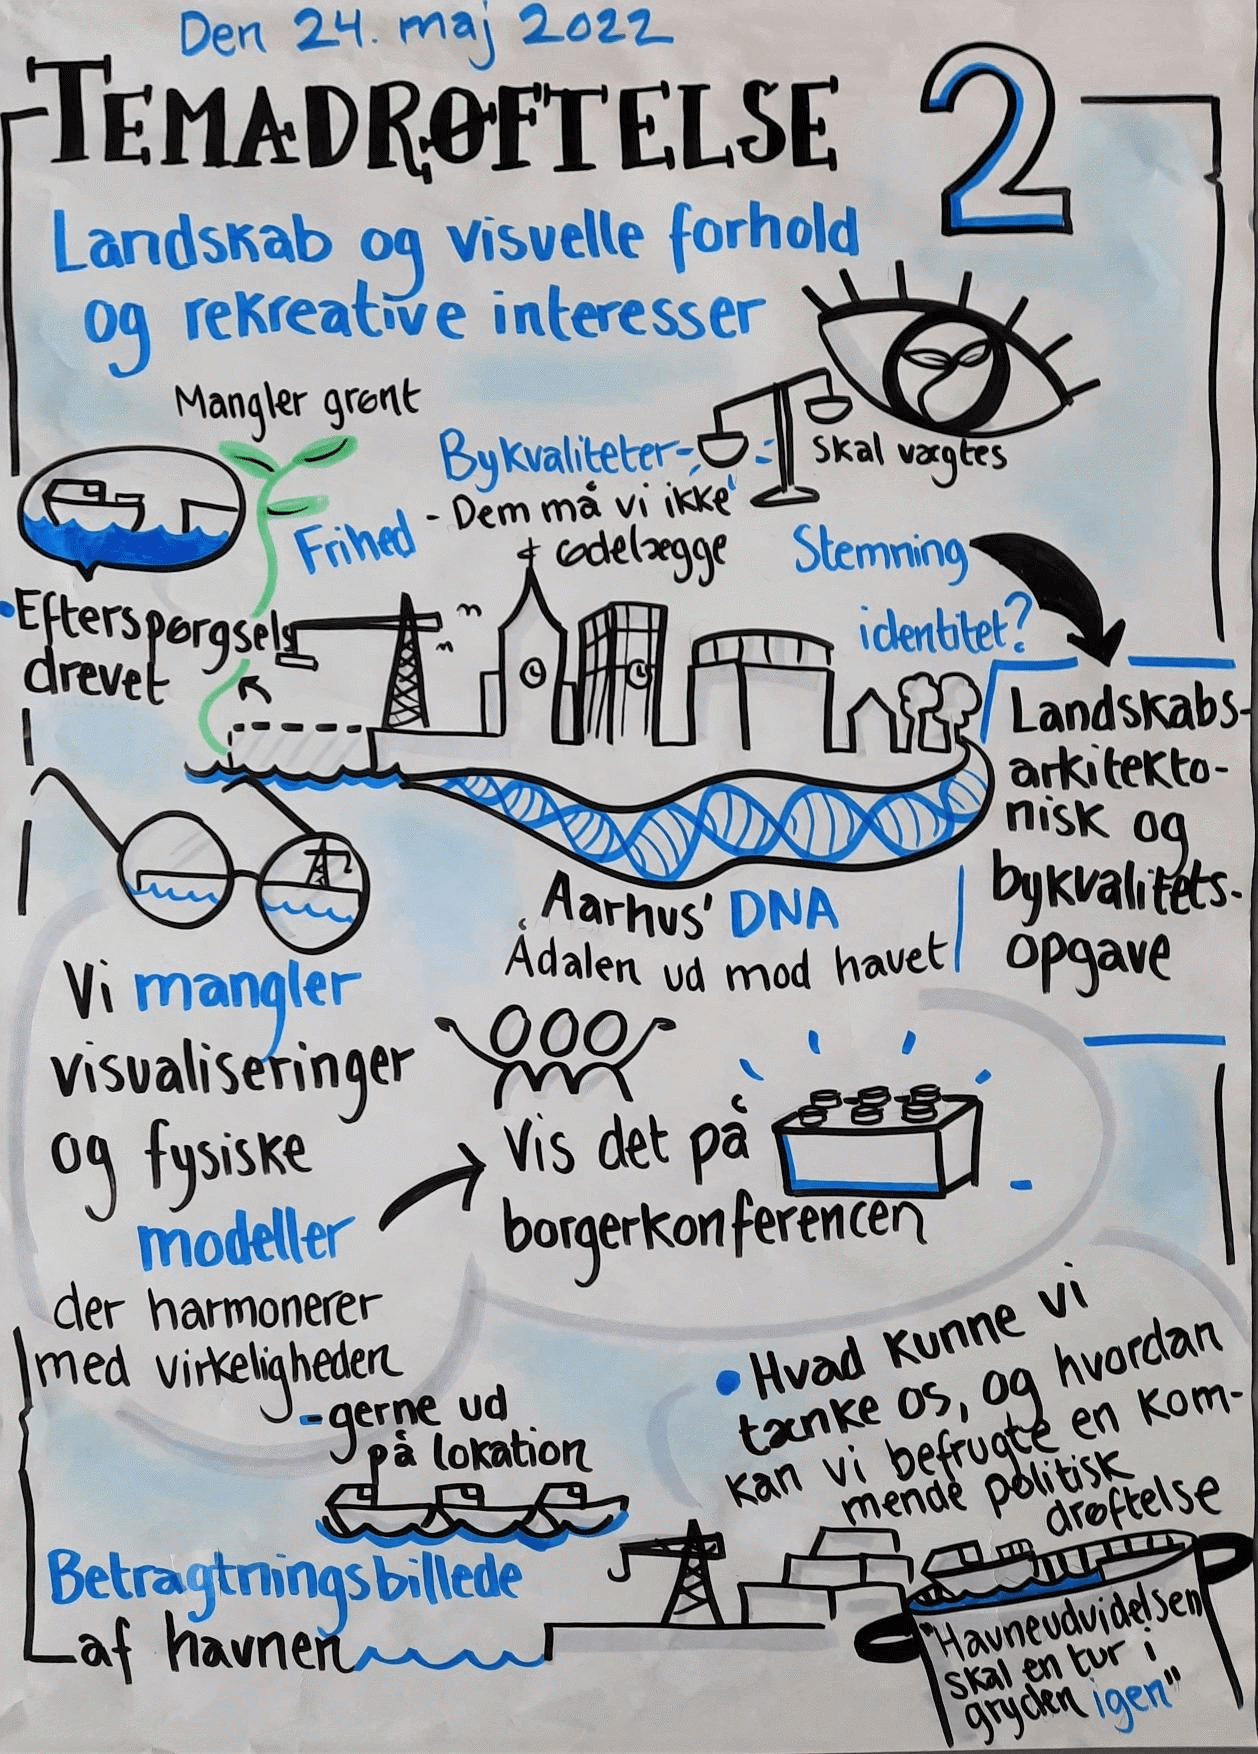 Den 24. maj 2022
TEMADRØFTELSE 2
Landskab og visuelle forhold
og rekreative interesser
Mangler grønt
Bykvaliteter
- Dem må vi ikke
ødelægge
Skal vægtes
Frihed
Stemning
identitet?
• Efterspørgsels
drevet
Landskabs-
arkitekto-
nisk og
bykvalitets-
opgave
Aarhus' DNA
Ådalen ud mod havet
Vi mangler
visualiseringer
og fysiske
modeller
der harmonerer
med virkeligheden
- gerne ud
på lokation
Vis det på
borgerkonferencen
• Hvad kunne vi
tænke os, og hvordan
kan vi befrugte en kom-
mende politisk
drøftelse
Betragtningsbillede
af havnen
"Havneudvidelsen
skal en tur i
gryden igen"